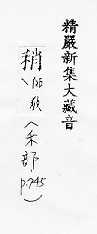 精嚴新集大藏音
稍
(禾部
p.745)